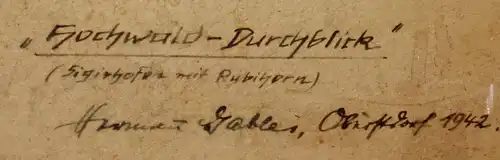 „Hochwald-Durchblick"
(Sigishofen mit Rubihorn)
Hermann Gabler, Oberstdorf 1942.